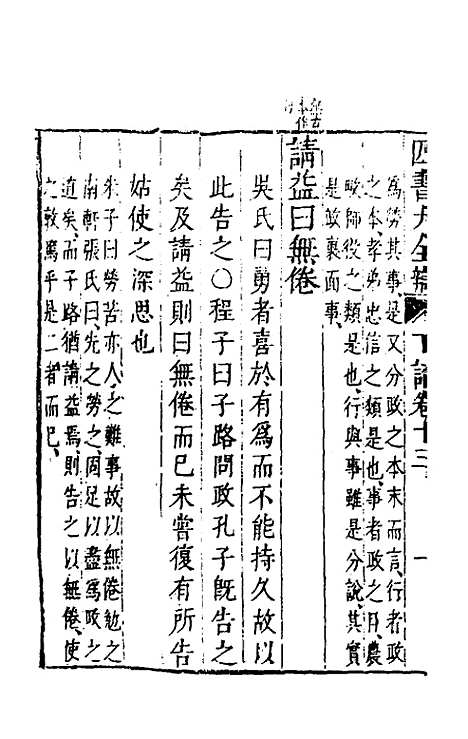 四書大全辯 下論卷十三 一
爲勞其事是又分政之本末而言行者政
之本孝弟忠信之類是也事者政之目農
畯師役之類是也行與事雖是分說其實
是政裏面事
請益曰無倦
吳氏曰勇者喜於有爲而不能持久故以
此告之○程子曰子路問政孔子旣告之
矣及請益則曰無倦而已未嘗復有所告
姑使之深思也
朱子曰勞苦亦人之難事故以無倦勉之
南軒張氏曰先之勞之固足以盡爲政之
道矣而子路猶請益焉則告之以無倦使
之敦篤乎是二者而已